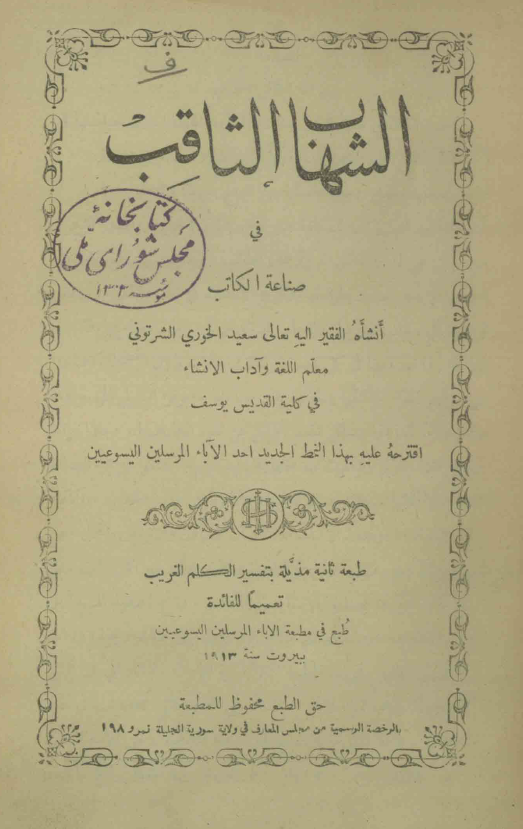 ف
الشهاب الثاقب
في
صناعة الكاتب
كتابخانهٔ
مجلس شورای ملی
أنشأهُ الفقير اليهِ تعالى سعيد الخوري الشرتوني
معلّم اللغة وآداب الانشاء
في كلية القديس يوسف
اقترحهُ عليهِ بهذا النمط الجديد احد الآباء المرسلين اليسوعيين
طبعة ثانية مذيَّلة بتفسير الكلم الغريب
تعميمًا للفائدة
طُبع في مطبعة الاباء المرسلين اليسوعيين
ببيروت سنة ١٩١٣
حق الطبع محفوظ للمطبعة
بالرخصة الرسمية من مجلس المعارف في ولاية سورية الجليلة نمرو ١٩٨